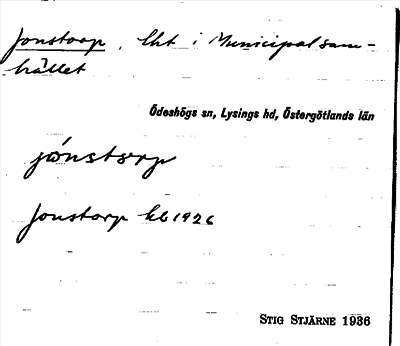 Jonstorp, lht i Municipalsam-
hället
Ödeshögs sn, Lysings hd, Östergötlands län
jónstorp
Jonstorp kb 1926
STIG STJÄRNE 1936